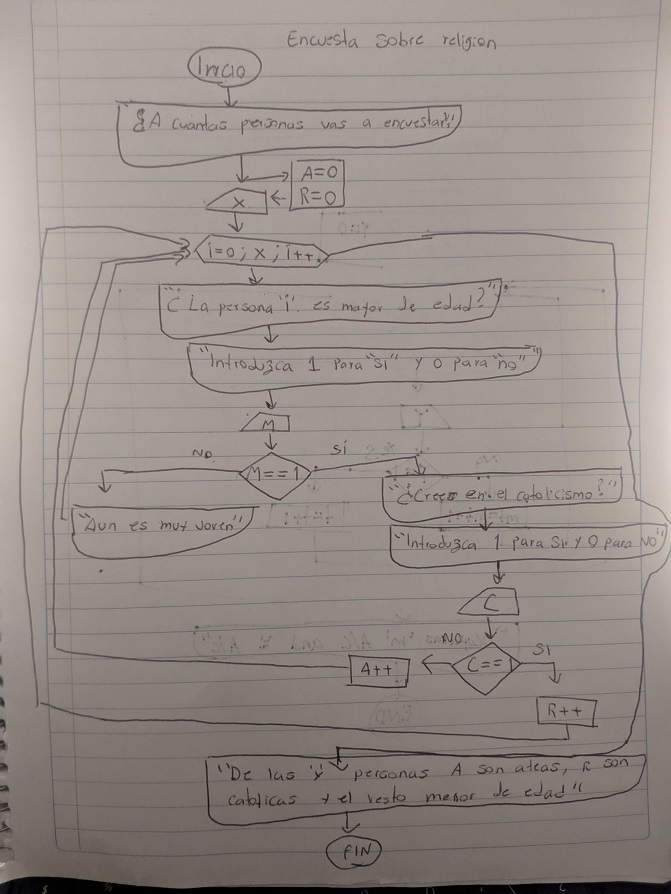 Encuesta sobre religion
Inicio
"¿A cuantas personas vas a encuestar?"
A=0
R=0
X
i=0 ; X ; i++
"¿La persona 'i' es mayor de edad?"
"Introduzca 1 para "si" y 0 para "no"
M
NO
SÍ
M==1
"¿Crees en el catolicismo?"
"Aun es muy joven"
"Introduzca 1 para Si y 0 para NO"
C
NO
SI
C==1
A++
R++
"De las 'x' personas A son ateas, R son
catolicas y el resto menor de edad"
FIN